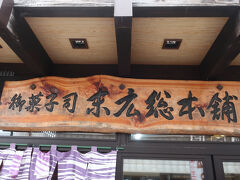 御菓子司 末広総本舗